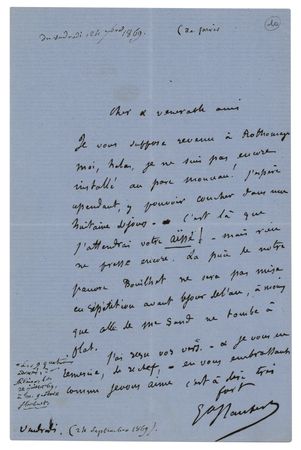 du vendredi 24 7bre 1869. (de Paris
Cher & vénérable ami
Je vous suppose revenu à Rothomage
moi, hélas, je ne suis pas encore
installé au parc Monceau ! j'espère
cependant, y pouvoir coucher dans une
huitaine de jours - C'est là que
j'attendrai votre Aïssé ! - mais rien
ne presse encore. La pièce de notre
pauvre Bouilhet ne sera pas mise
en répétition avant le jour de l'an, à moins
que celle de Me Sand ne tombe à
plat.
J'ai reçu vos vers. - & je vous en
remercie, - en vous embrassant
comme je vous aime c'est à dire très
fort
Gve Flaubert
Vendredi. (24 septembre 1869.)